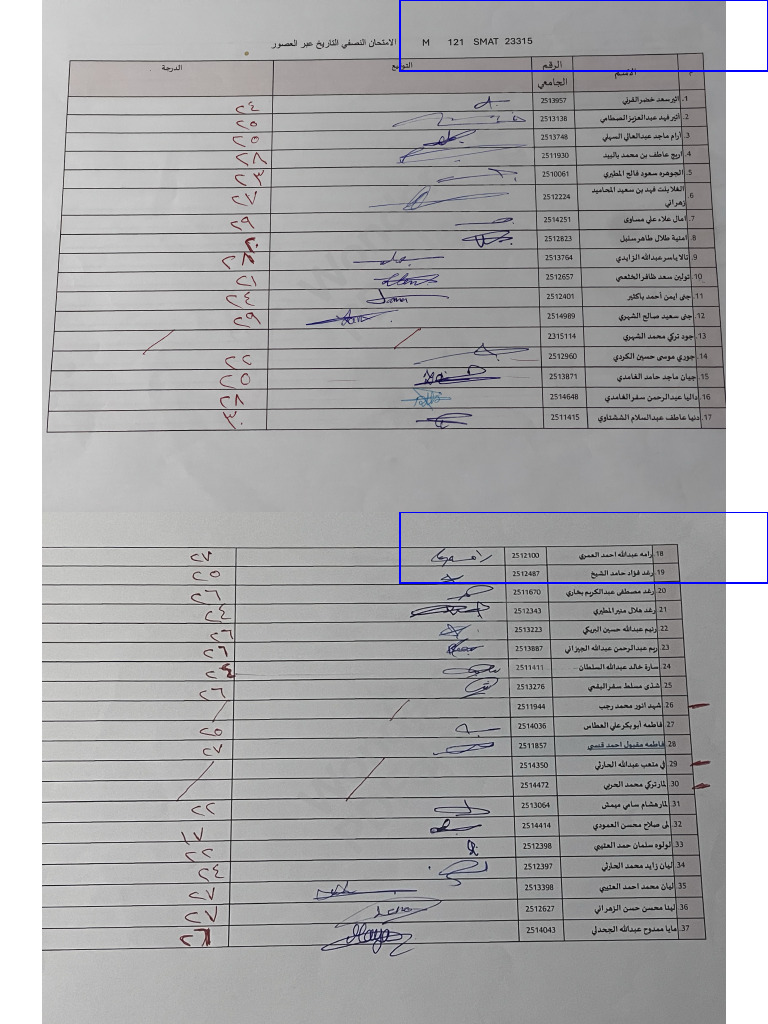 الامتحان النصفي التاريخ عبر العصور M 121 SMAT 23315
م الاسم الرقم الجامعي التوقيع الدرجة
1. اثير سعد خضر القرني 2513957 ٢٤
2. أثير فهد عبدالعزيز 2513138 ٢٥
3. أرام ماجد عبدالعالي السهلي 2513748 ٢٥
4. اريج عاطف بن محمد بالبيد 2511930 ٢٨
5. الجوهره سعود فالح المطيري 2510061 ٢٣
6. العلا بنت فهد بن سعيد المحاميد زهراني 2512224 ٢٧
7. امال علاء علي مساوى 2514251 ٢٩
8. امنية طلال طاهر سنبل 2512823 ٢٠
9. تالا ياسر عبدالله الزايدي 2513764 ٢٨
10. تولين سعد ظافر الخثعمي 2512657 ٢١
11. جنى ايمن أحمد باكثير 2512401 ٢٤
12. جنى سعيد صالح الشهري 2514989 ٢٩
13. جود تركي محمد الشهري 2315114
14. جوري موسى حسين الكردي 2512960 ٢٢
15. جيان ماجد حامد الغامدي 2513871 ٢٥
16. داليا عبدالرحمن سفر الغامدي 2514648 ٢٨
17. دنيا عاطف عبدالسلام الششتاوي 2511415 ٣٠
18. رامه عبدالله احمد العمري 2512100 ٢٧
19. رغد فؤاد حامد الشيخ 2512487 ٢٥
20. رغد مصطفى عبدالكريم بخاري 2511670 ٢٦
21. رغد هلال منير المطيري 2512343 ٢٤
22. رنيم عبدالله حسين البريكي 2513223 ٢٦
23. ريم عبدالرحمن عبدالله الجيزاني 2513887 ٢٦
24. سارة خالد عبدالله السلطان 2511411 ٢٤
25. شذى مسلط سفر البقمي 2513276 ٢٦
26. شهد انور محمد رجب 2511944
27. فاطمه أبو بكر علي العطاس 2514036 ٢٥
28. فاطمه مقبول احمد قنسي 2511857 ٢٧
29. في متعب عبدالله الحارثي 2514350
30. لمار تركي محمد الحربي 2514472
31. لمار هشام سامي ميمش 2513064 ٢٢
32. لمى صلاح محسن العمودي 2514414 ١٧
33. لولوه سلمان حمد العتيبي 2512398 ٢٢
34. ليان زايد محمد الحارثي 2512397 ٢٤
35. ليان محمد احمد العتيبي 2513398 ٢٧
36. لينا محسن حسن الزهراني 2512627 ٢٧
37. مايا ممدوح عبدالله الجحدلي 2514043 ٢٦